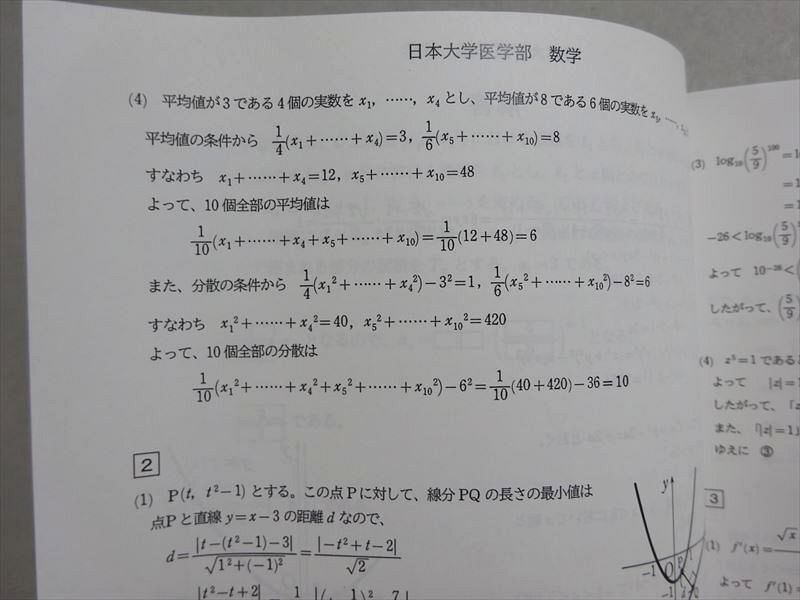 日本大学医学部 数学
(4) 平均値が3である4個の実数を x₁, ……, x₄ とし、平均値が8である6個の実数を x₅, ……,
平均値の条件から 1/4(x₁+……+x₄)=3, 1/6(x₅+……+x₁₀)=8
すなわち x₁+……+x₄=12, x₅+……+x₁₀=48
よって、10個全部の平均値は
1/10(x₁+……+x₄+x₅+……+x₁₀)=1/10(12+48)=6
また、分散の条件から 1/4(x₁²+……+x₄²)−3²=1, 1/6(x₅²+……+x₁₀²)−8²=6
すなわち x₁²+……+x₄²=40, x₅²+……+x₁₀²=420
よって、10個全部の分散は
1/10(x₁²+……+x₄²+x₅²+……+x₁₀²)−6²=1/10(40+420)−36=10
2
(1) P(t, t²−1) とする。この点Pに対して、線分PQの長さの最小値は
点Pと直線 y=x−3 の距離 d なので、
d=|t−(t²−1)−3|/√(1²+(−1)²)=|−t²+t−2|/√2
|t²−t+2|
y
O
P
−1
(3) log₁₀(5/9)¹⁰⁰=1
=1
=1
−26<log₁₀(5/9)
よって 10⁻²⁶<(
したがって、(5/9)
(4) z⁵=1 である
よって |z|=1
したがって、「z
また、「|z|=1」
ゆえに ③
3
(1) f'(x)=√x
よって f'(1)=